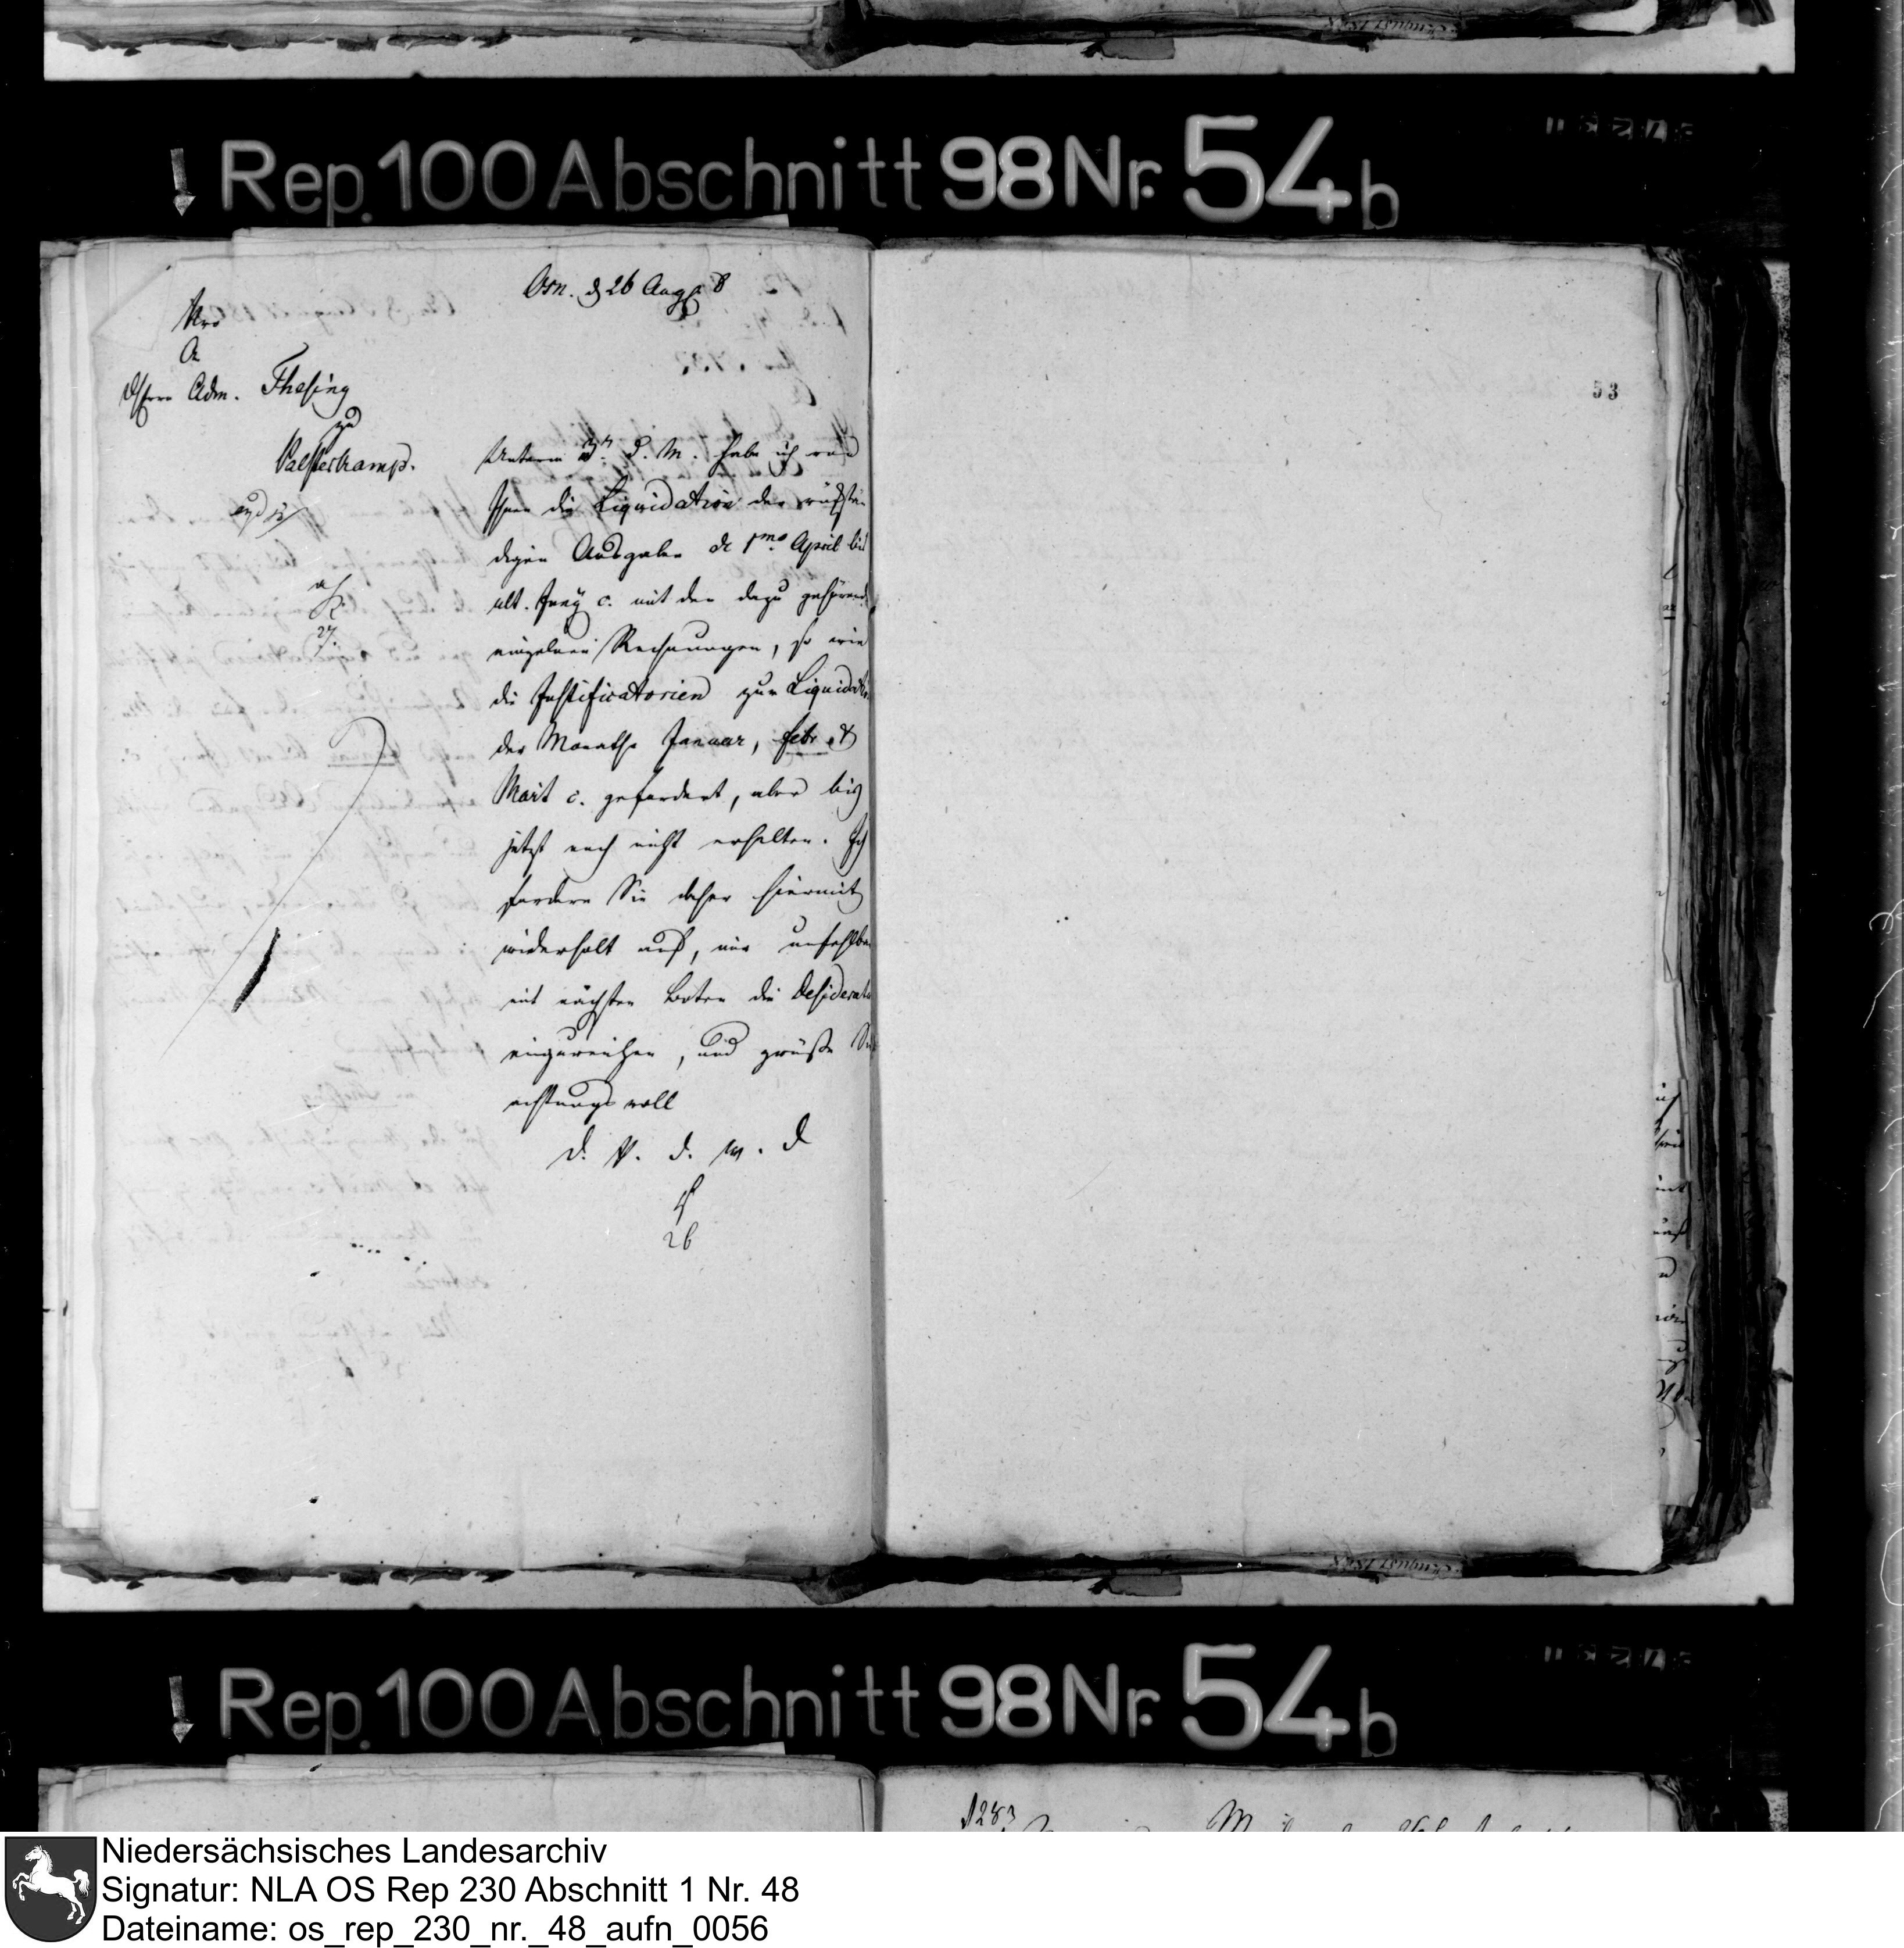 Rep. 100 Abschnitt 98 Nr. 54b
Osn. d 26 Aug. 8
An
Herrn Adm. Thesing
zu
Palsterkamp.
53
Unterm 3n. d. M. habe ich von
Ihnen die Liquidation der rückstän
digen Ausgaben de 1mo April bis
ult. Juny c. mit den dazu gehörend
einzelnen Rechnungen, so wie
die Justificatorien zur Liquidation
der Monathe Januar, Febr. &
Mart c. gefordert, aber bis
jetzt noch nicht erhalten. Ich
fordere Sie daher hiermit
widerholt auf, mir unfehlbar
mit nächsten Boten die Desiderata
einzureichen, und grüße Sie
achtungsvoll
D. V. d. w. D
26
27.
Rep. 100 Abschnitt 98 Nr. 54b
Niedersächsisches Landesarchiv
Signatur: NLA OS Rep 230 Abschnitt 1 Nr. 48
Dateiname: os_rep_230_nr._48_aufn_0056